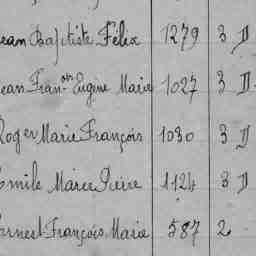 Jean Baptiste Félix 1279 3 D
Jean Fran.on Eugène Marie 1027 3 D.
Roger Marie François 1030 3 D
Emile Marce Pierre 1124 3 D
Ernest François Marie 587 2